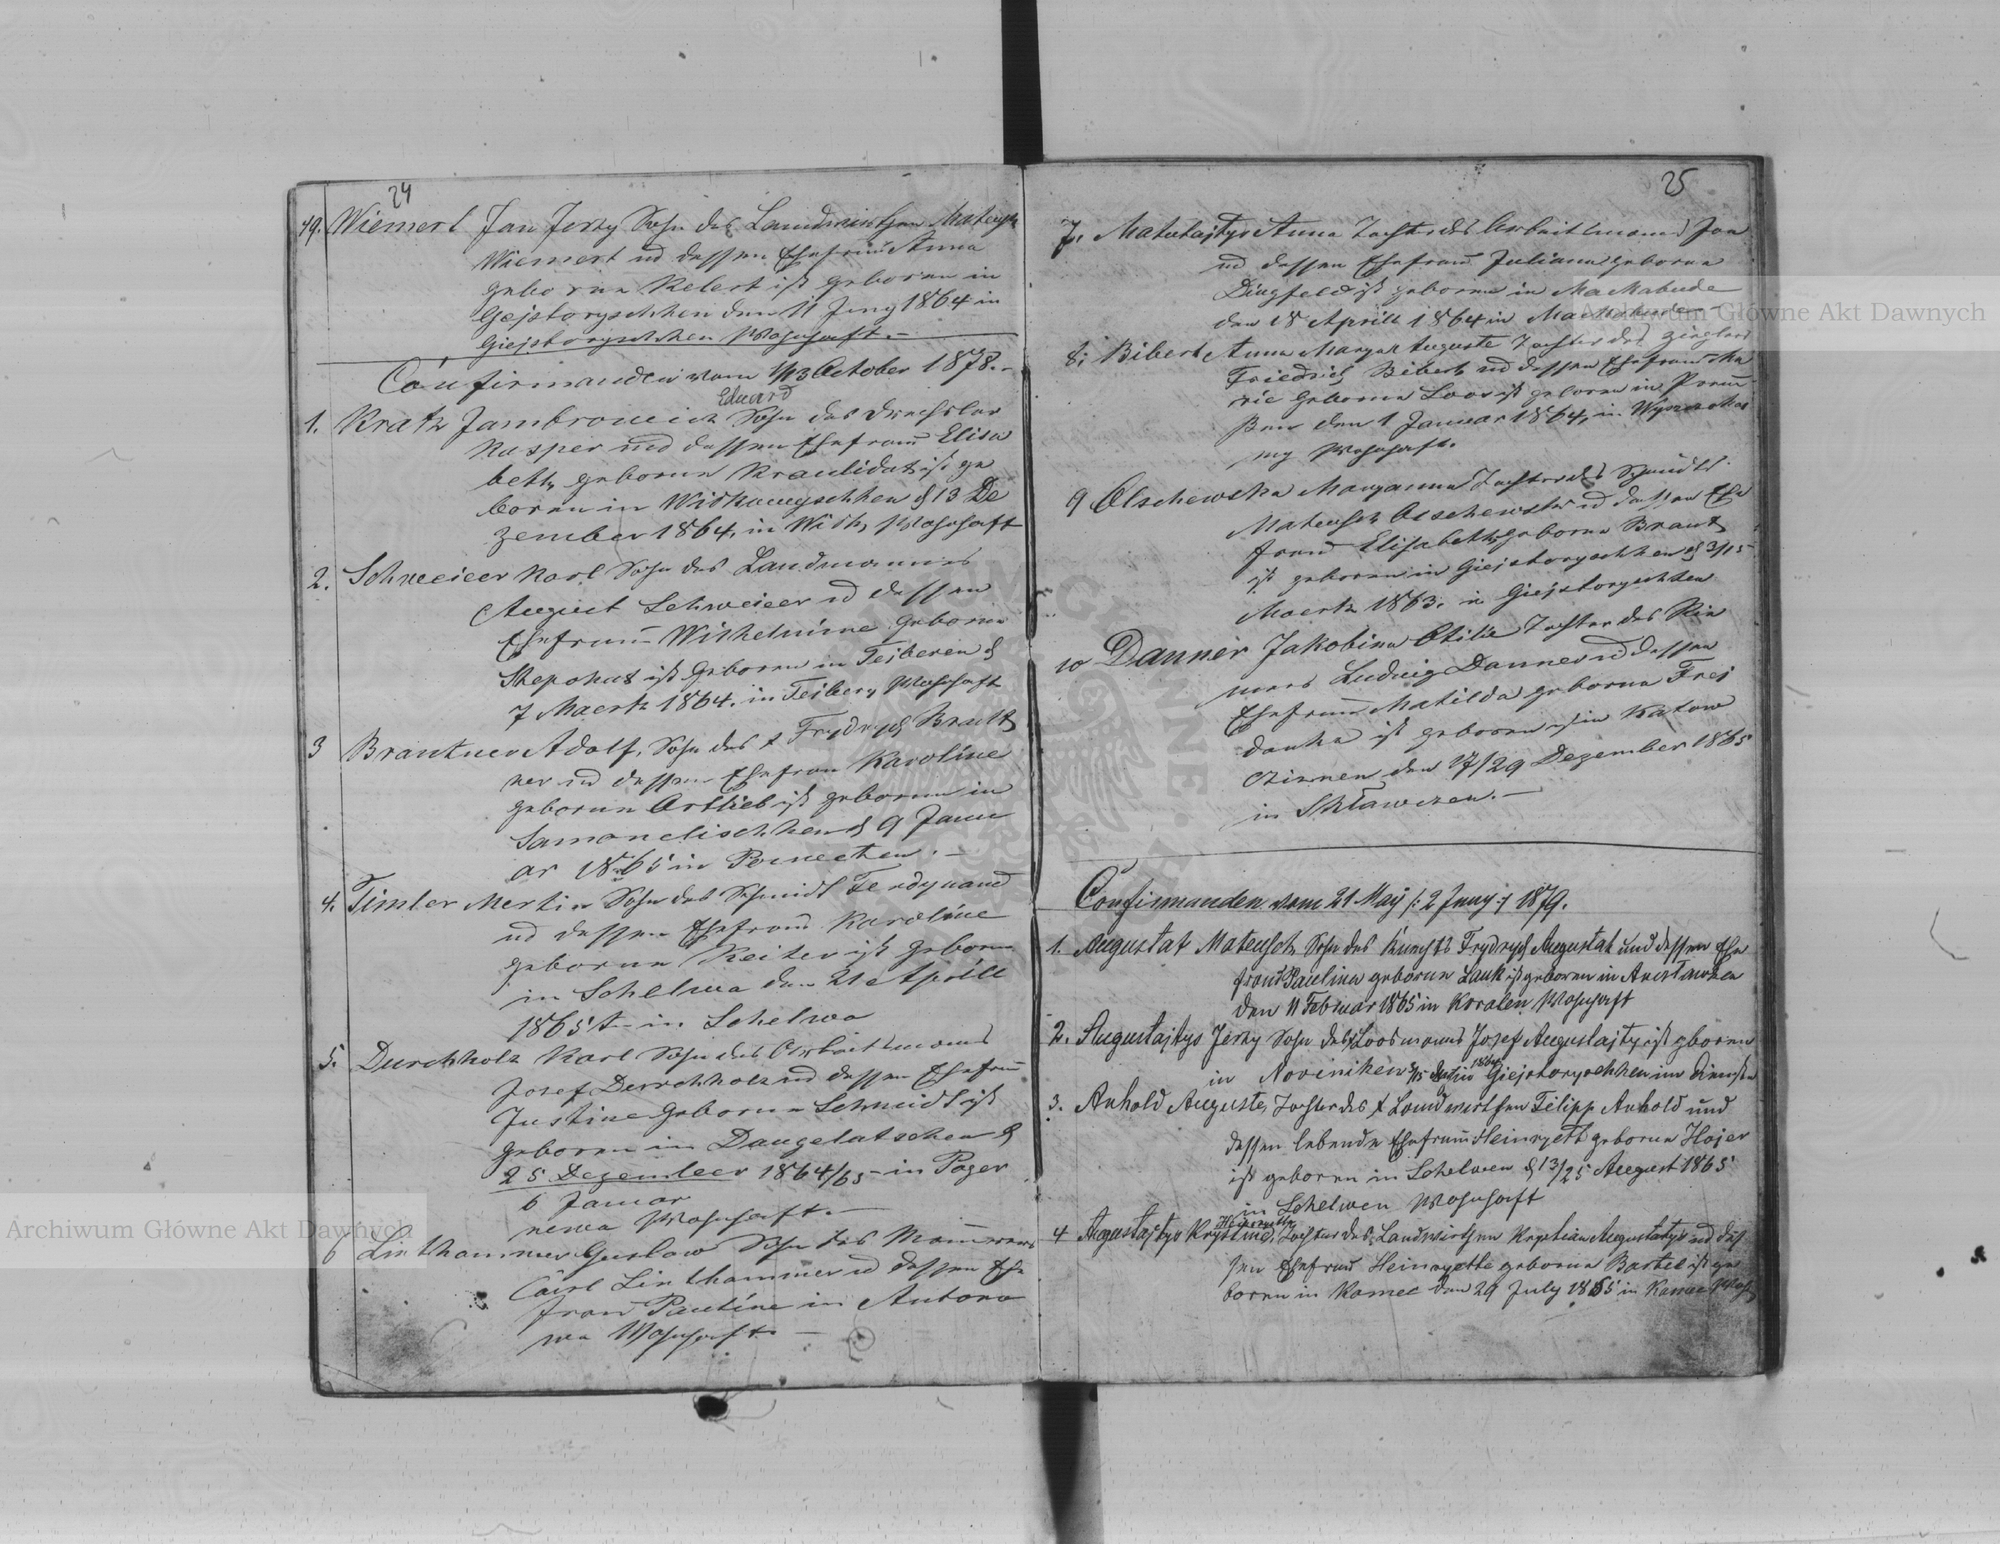 24
49. Wiemert Jan Jerzy Sohn des Landwirthen Mateusz
Wiemert ud dessen Ehefrau Anna
geborne Kelert ist geboren in
Giejstoryschken den 11 Juny 1864 in
Giejstoryschken Wohnhaft. –
Confirmanden vom 1/13 October 1878. –
Eduard
1. Kratz Jambroneick Sohn des Drechsler
Kasper und dessen Ehefrau Elisa
beth, geborne Kraulidat ist ge
boren in Witkunyschken d 13 De
zember 1864, in Witk, Wohnhaft
2. Schweieer Karl Sohn des Landmannes
August Schweieer ud dessen
Ehefrau Wilhelmine geborne
Skeponat ist Geboren in Tejberen d
7 Maertz 1864. in Teibery Wohnhaft
3 Brantner Adolf, Sohn des † Frydrych Brant
ner ud dessen Ehefrau Karoline
geborne Ortlieb ist geboren in
Samanelischken d 9 Janu
ar 1865 in Poineeten. –
4. Timler Mertin Sohn des Schmidt Ferdynand
ud dessen Ehefrau Karoline
geborne Reiter ist geboren
in Schelwa den 21 Aprill
1865 in Schelwa
5. Durchholz Karl Sohn des Arbeitsmanns
Josef Durchholz ud dessen Ehefrau
Justine Geborne Schmidt ist
geboren in Daugelatschen d
25 Dezember 1864/65 – in Poger
6 Januar
newa Wohnhaft. –
6 Linkhammer Gustaw Sohn des
Carl Linkhammer ud dessen Ehe
frau Pauline in Antono
wa Wohnhaft. –
25
7. Matulajtys Anna Tochter des Arbeitsmann Jan
ud dessen Ehefrau Juliana geborne
Dingfeld ist geboren in MaMabude
den 18 Aprill 1864 in
8. Bibert Anna Maryar Auguste Tochter des Zieglers
Friedrich Bibert ud dessen Ehefrau Ma
rie geborne Loos ist geboren in Preu
ßen den 1 Januar 1864, in
ny Wohnhaft.
9 Olschewska Maryanna Tochter des Schmidts
Mateusch Olschewski ud dessen Ehe
frau Elisabeth geborne Brant
ist geboren in Giejstoryschken d 3/15
Maertz 1863. in Giejstoryschken
10 Danner Jakobina Otilie Tochter des Rie
mers Ludwig Danner ud dessen
Ehefrau Matilda geborne Frej
danka ist geboren in Katow
czisnen den 17/29 Dezember 1865
in Sklawczen. –
Confirmanden vom 21 May /: 2 Juny :/ 1879.
1. Augustat Mateusch Sohn des Knechts Frydrych Augustat und dessen Ehe
frau Paulina geborne Lauk ist geboren in Auxtawken
den 11 Februar 1865 in Koralen Wohnhaft
2. Augustajtys Jerzy Sohn des Loosmanns Josef Augustajtys ist gboren
1864
in Noviniken 3/15 Giejstoryschken im Dienste
3. Anhold Auguste, Tochter des † Landwirthen Filipp Anhold und
dessen lebende Ehefrau Heinryett geborne Hojer
ist geboren in Schelwen d 13/25 August 1865
in Schelwen Wohnhaft
4 Augustajtys Krystine, Tochter des Landwirthen Krystian Augustatys ud des
sen Ehefrau Heinryette geborne Bartel ist ge
boren in Kamec den 29 July 1865 in Kamec Woh
Archiwum Główne Akt Dawnych
Archiwum Główne Akt Dawnych